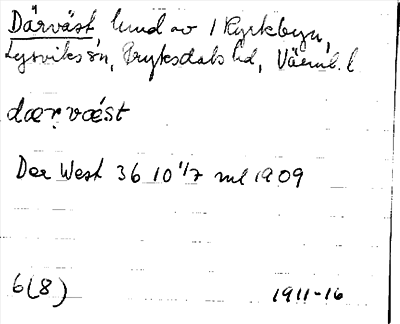 Därväst, lund av 1 Kyrkbyn,
Lysviks sn, Fryksdals hd, Värml. l
dærvǽst
Der West 36 10 1/7 ml 1909
6(8) 1911-16